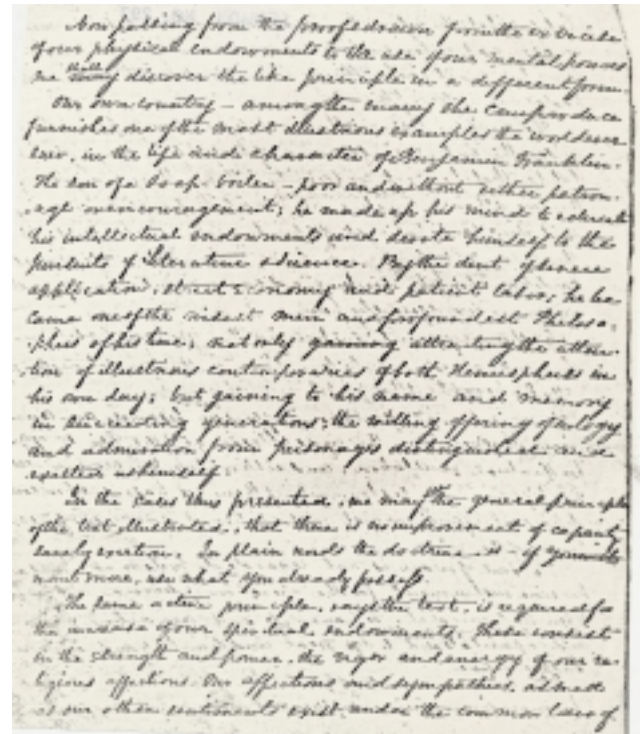 Now passing from the proofs drawn from the exercise
of our physical endowments to the use of our mental powers
we shall discover the like principle in a different form.
Our own country – among the many she can produce
furnishes one of the most illustrious examples the world ever
saw, in the life and character of Benjamin Franklin.
The son of a soap-boiler – poor and without either patron-
age or encouragement; he made up his mind to
his intellectual endowments and devote himself to the
pursuits of Literature & Science. By the dint of
application, strict economy and patient labor; he be
came one of the wisest men and profoundest Philoso-
phers of his time; not only gaining attracting the atten-
tion of illustrious contemporaries of both Hemispheres in
his own day; but gaining to his name and memory
in succeeding generations; the willing offering of eulogy
and admiration from personages distinguished and
exalted as himself.
In the cases thus presented, we may the general principle
of the text illustrated, that there is no improvement of capacity
without exertion. In plain words the doctrine is – if you
want more, use what you already possess.
The same active principle, says the text, is required for
the increase of our spiritual endowments. These consist
in the strength and power, the vigor and energy of our re-
ligious affections. Our affections and sympathies, as much
as our other sentiments exist under the common laws of